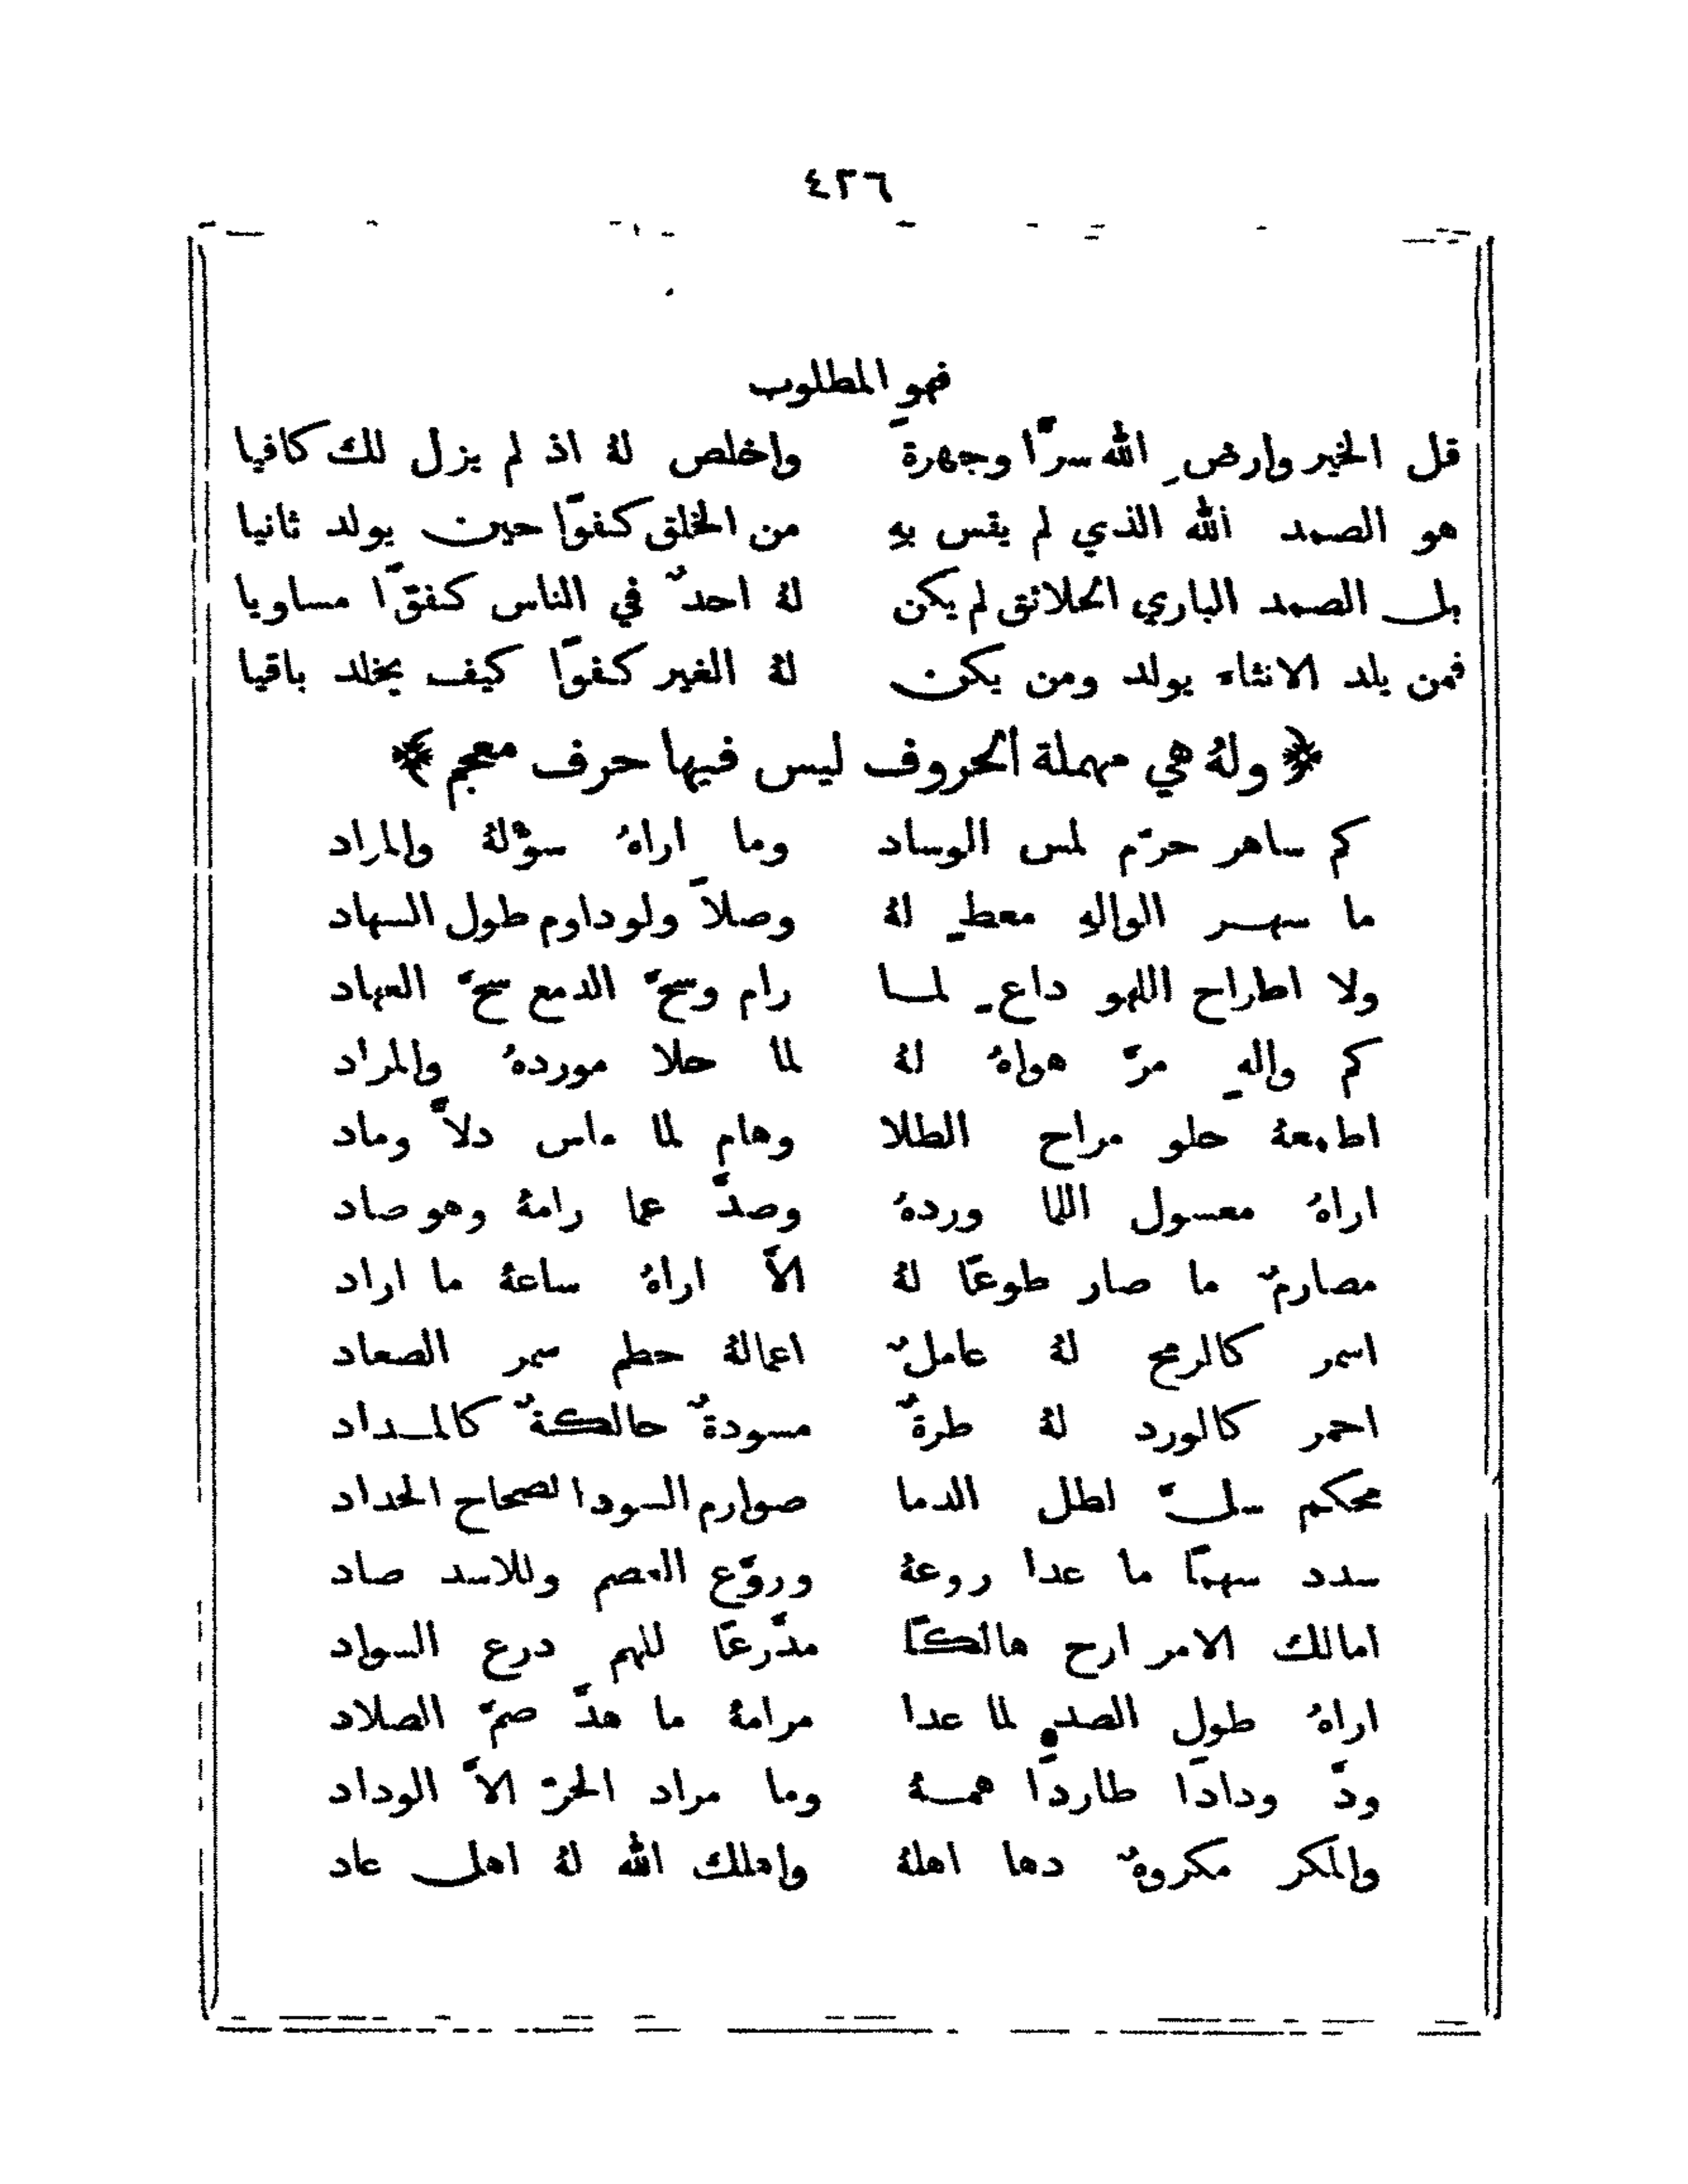 ٤٢٦
فهو المطلوب
قل الخير وارضِ الله سرًّا وجهرةً واخلص لهُ اذ لم يزل لك كافيا
هو الصمد الله الذي لم يقس بهِ من الخلق كفوًا حين يولد ثانيا
بلى الصمد الباري الخلائق لم يكن لهُ احدٌ في الناس كفؤًا مساويا
فمن يلد الانثاء يولد ومن يكن لهُ الغير كفوًا كيف يخلد باقيا
﴿ ولهُ هي مهملة الحروف ليس فيها حرف معجم ﴾
كم ساهر حرّم لمس الوساد وما اراهُ سوْلهُ والمراد
ما سهر الوالهِ معطٍ لهُ وصلاً ولو داوم طول السهاد
ولا اطراح اللهو داعٍ لما رام وسحَّ الدمع سحَّ العهاد
كم والهٍ مرَّ هواهُ لهُ لما حلا موردهُ والمراد
اطمعهُ حلو مراح الطلا وهام لما ماس دلاًّ وماد
اراهُ معسول اللما وردهُ وصدَّ عما رامهُ وهو صاد
مصارمٌ ما صار طوعًا لهُ الاَّ اراهُ ساعةُ ما اراد
اسمر كالرمح لهُ عاملٌ اعمالهُ حطم سمر الصعاد
احمر كالورد لهُ طرةٌ مسودةٌ حالكةٌ كالمداد
محكم سلَّ لطل الدما صوارم السودا لصحاح الحداد
سدد سهمًا ما عدا روعهُ وروَّع العصم وللاسد صاد
امالك الامر ارح هالكًا مدَّرعًا للهم درع السواد
اراهُ طول الصدِ لما عدا مرامهُ ما هدَّ صمَّ الصلاد
ودَّ ودادًا طاردًا همهُ وما مراد الحرّ الاَّ الوداد
والمكر مكروهٌ دها اهلهُ واهلك الله لهُ اهل عاد